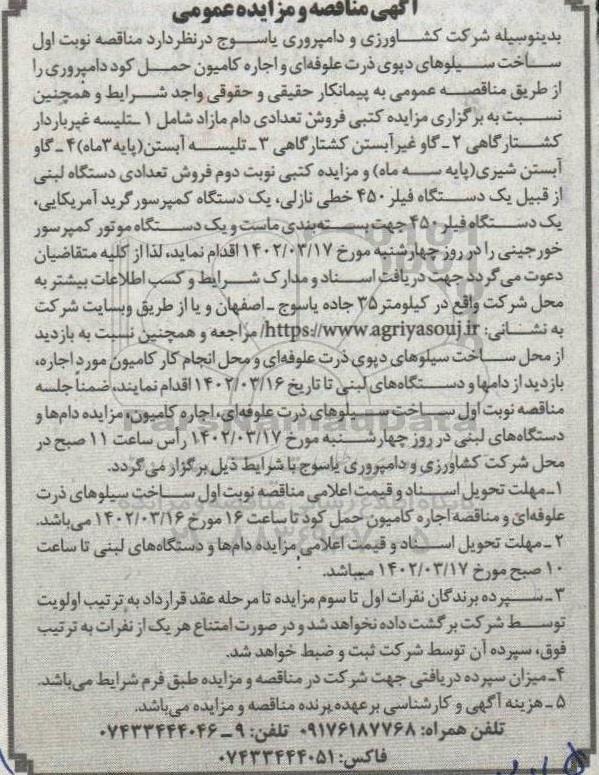 آگهی مناقصه و مزایده عمومی
بدینوسیله شرکت کشاورزی و دامپروری یاسوج در نظر دارد مناقصه نوبت اول
ساخت سیلوهای دپوی ذرت علوفه‌ای و اجاره کامیون حمل کود دامپروری را
از طریق مناقصه عمومی به پیمانکار حقیقی و حقوقی واجد شرایط و همچنین
نسبت به برگزاری مزایده کتبی فروش تعدادی دام مازاد شامل ۱ـ تلیسه غیرباردار
کشتارگاهی ۲ـ گاو غیرآبستن کشتارگاهی ۳ـ تلیسه آبستن(پایه ۳ماه) ۴ـ گاو
آبستن شیری(پایه سه ماه) و مزایده کتبی نوبت دوم فروش تعدادی دستگاه لبنی
از قبیل یک دستگاه فیلر ۴۵۰ خطی نازلی، یک دستگاه کمپرسور گرید آمریکایی،
یک دستگاه فیلر ۴۵۰ جهت بسته‌بندی ماست و یک دستگاه موتور کمپرسور
خورجینی را در روز چهارشنبه مورخ ۱۴۰۲/۰۳/۱۷ اقدام نماید، لذا از کلیه متقاضیان
دعوت می‌گردد جهت دریافت اسناد و مدارک شرایط و کسب اطلاعات بیشتر به
محل شرکت واقع در کیلومتر ۳۵ جاده یاسوج ـ اصفهان و یا از طریق وبسایت شرکت
به نشانی: https://www.agriyasouj.ir/ مراجعه و همچنین نسبت به بازدید
از محل ساخت سیلوهای دپوی ذرت علوفه‌ای و محل انجام کار کامیون مورد اجاره،
بازدید از دامها و دستگاه‌های لبنی تا تاریخ ۱۴۰۲/۰۳/۱۶ اقدام نمایند، ضمناً جلسه
مناقصه نوبت اول ساخت سیلوهای ذرت علوفه‌ای، اجاره کامیون، مزایده دام‌ها و
دستگاه‌های لبنی در روز چهارشنبه مورخ ۱۴۰۲/۰۳/۱۷ رأس ساعت ۱۱ صبح در
محل شرکت کشاورزی و دامپروری یاسوج با شرایط ذیل برگزار می‌گردد.
۱ـ مهلت تحویل اسناد و قیمت اعلامی مناقصه نوبت اول ساخت سیلوهای ذرت
علوفه‌ای و مناقصه اجاره کامیون حمل کود تا ساعت ۱۶ مورخ ۱۴۰۲/۰۳/۱۶ می‌باشد.
۲ـ مهلت تحویل اسناد و قیمت اعلامی مزایده دام‌ها و دستگاه‌های لبنی تا ساعت
۱۰ صبح مورخ ۱۴۰۲/۰۳/۱۷ میباشد.
۳ـ سپرده برندگان نفرات اول تا سوم مزایده تا مرحله عقد قرارداد به ترتیب اولویت
توسط شرکت برگشت داده نخواهد شد و در صورت امتناع هر یک از نفرات به ترتیب
فوق، سپرده آن توسط شرکت ثبت و ضبط خواهد شد.
۴ـ میزان سپرده دریافتی جهت شرکت در مناقصه و مزایده طبق فرم شرایط می‌باشد.
۵ـ هزینه آگهی و کارشناسی بر عهده برنده مناقصه و مزایده می‌باشد.
تلفن همراه: ۰۹۱۷۶۱۸۷۷۶۸ تلفن: ۹ـ۰۷۴۳۳۴۴۴۰۴۶
فاکس: ۰۷۴۳۳۴۴۴۰۵۱
ParsNamadData